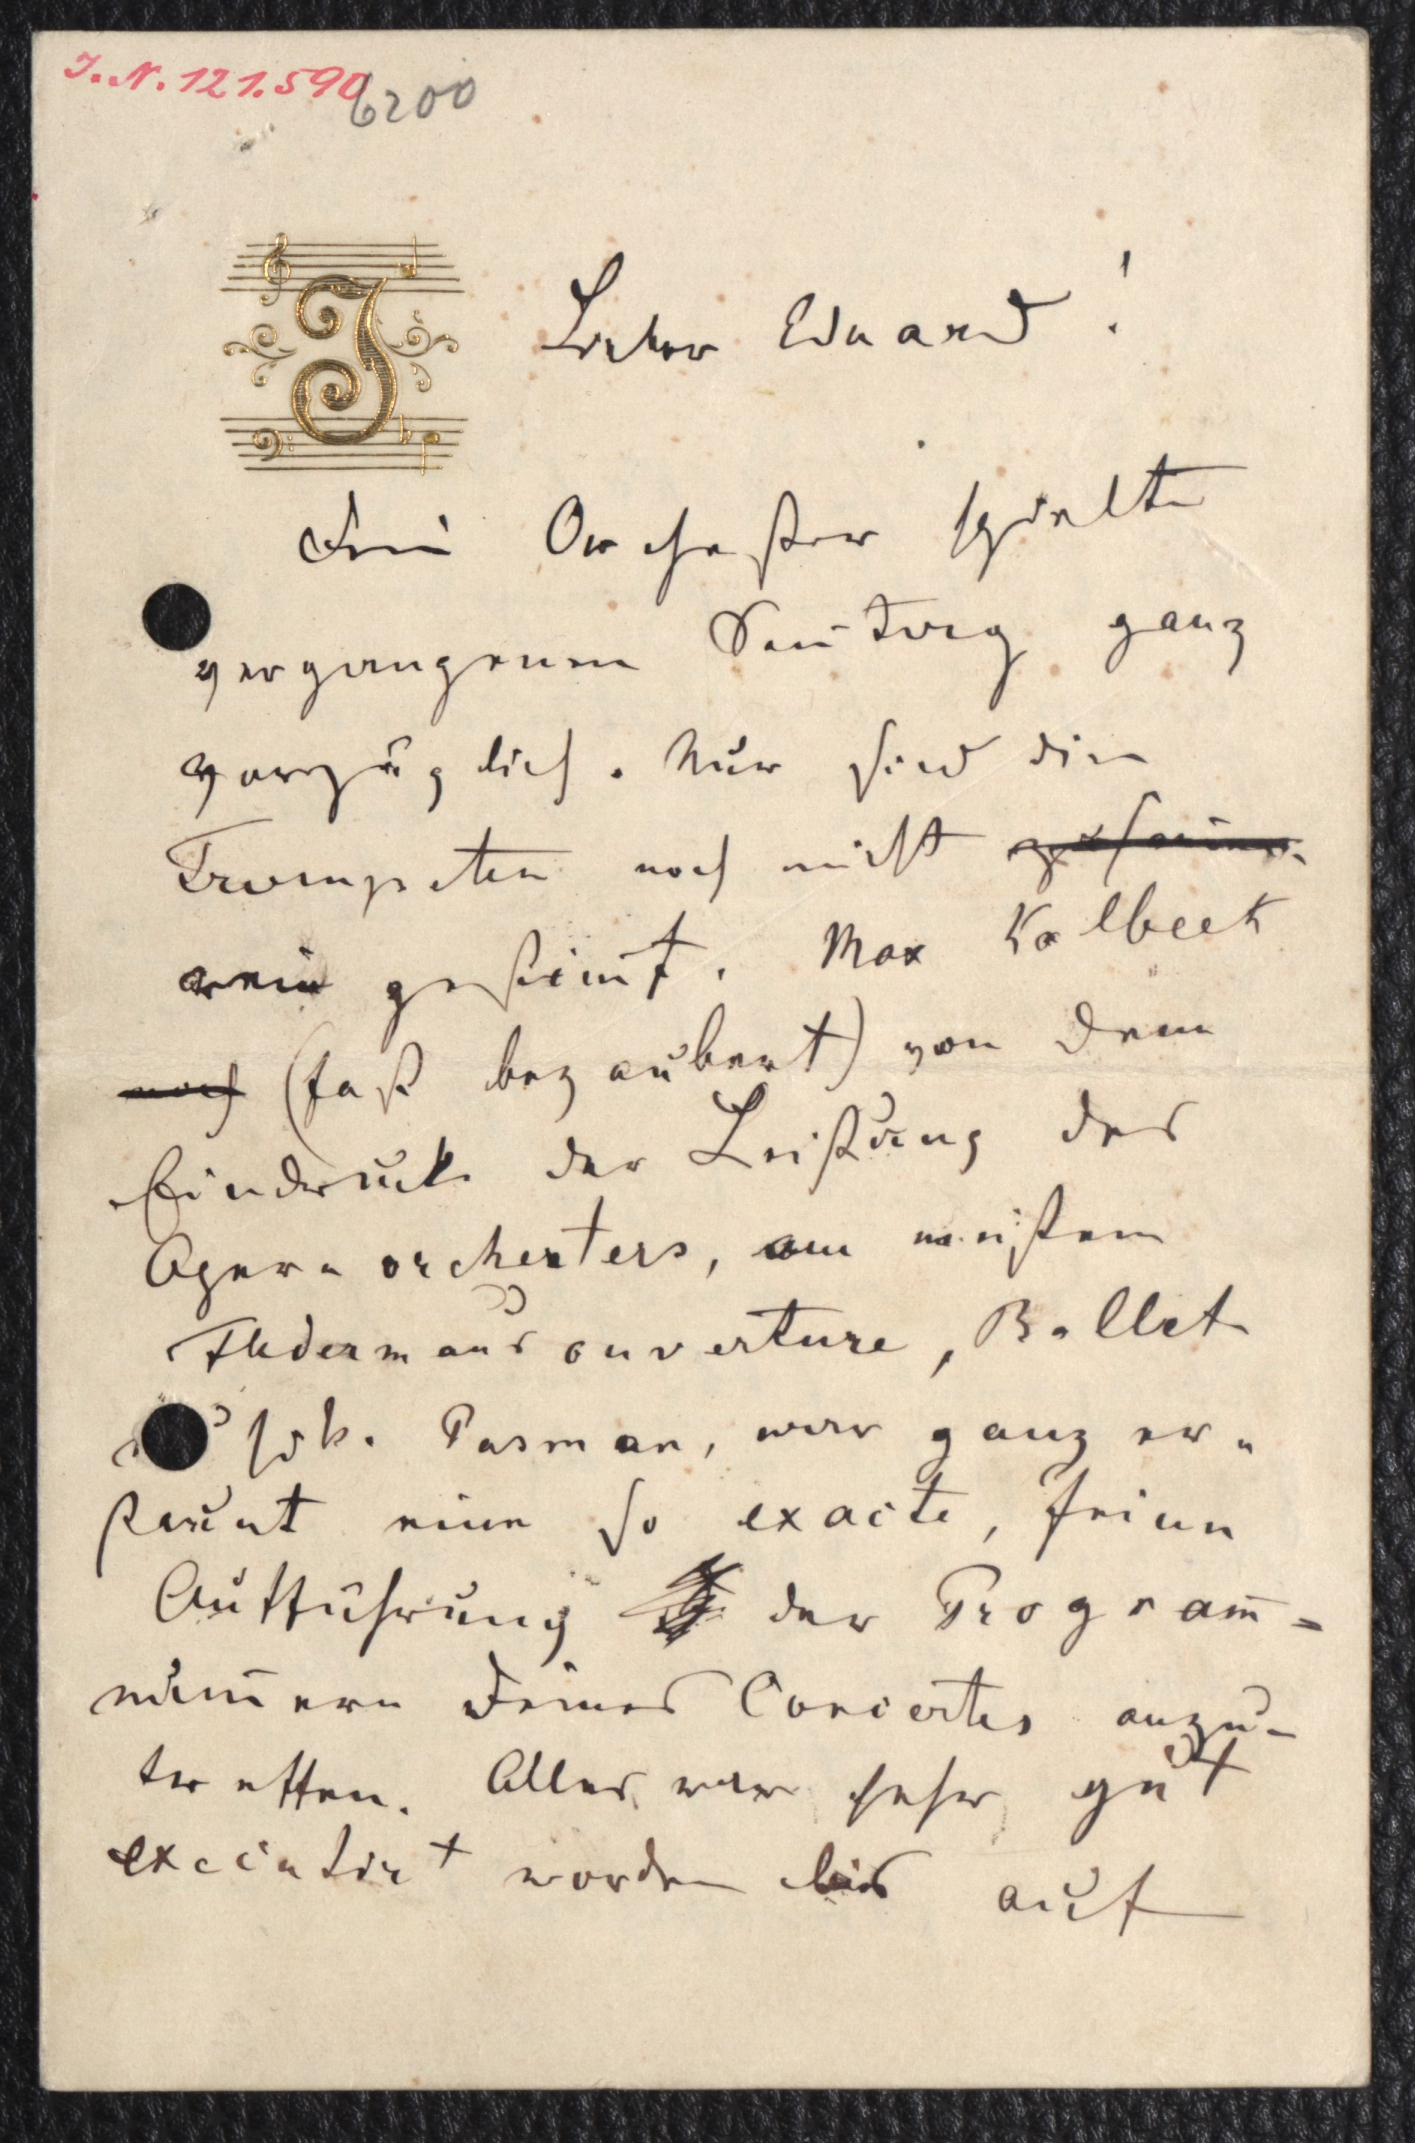 I. N. 121.590
6200
J
Lieber Eduard!
Dein Orchester spielte
vergangenen Son̄tag ganz
vorzüglich. Nur sind die
Trompeten noch nicht
rein gestim̄t. Max Kalbeck
noch (fast bezaubert) von dem
Eindruck der Leistung des
Opernorchesters, am meisten
Fledermausouverture, Ballet
Pasman, war ganz er-
staunt eine so exacte, feine
Aufführung der Program̄-
num̄ern Deines Concertes anzu-
treffen. Alles war sehr gut
executirt worden bis auf